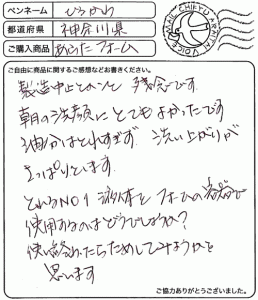 ペンネーム ひろかわ
都道府県 神奈川県
ご購入商品 あらったフォーム
MAINICHI KYU TRAITAI VOICE
ご自由に商品に関するご感想などお書きください。
製造中止とのこと 残念です。
朝の洗顔にとてもよかったです
油分はとれすぎず 洗い上がりが
さっぱりとします。
とれるNO1 液体を フォームの容器で
使用するのはどうでしょうか?
使い終わったらためしてみようかと
思います
ご協力ありがとうございました。